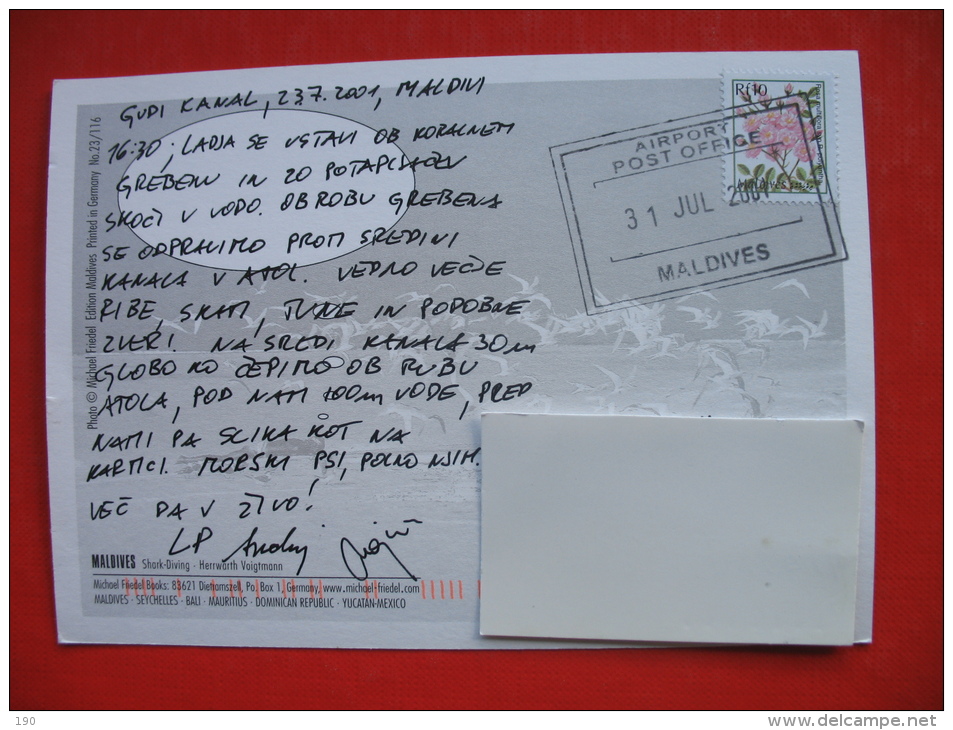 GUDI KANAL, 23.7.2001, MALDIVI
16:30; LADJA SE USTAVI OB KORALNEM
GREBENU IN 20 POTAPLJAČEV
SKOČI V VODO. OB ROBU GREBENA
SE ODPRAVIMO PROTI SREDINI
KANALA V ATOL. VEDNO VEČJE
RIBE, SKATI, TUNE IN PODOBNE
ZVERI. NA SREDI KANALA 30m
GLOBOKO ČEPIMO OB RUBU
ATOLA, POD NAMI 100m VODE, PRED
NAMI PA SLIKA KOT NA
KARTICI. MORSKI PSI, POLNO NJIH.
VEČ PA V ŽIVO!
LP Andrej
MALDIVES Shark-Diving · Herrwarth Voigtmann
Michael Friedel Books: 83621 Dietramszell, Po. Box 1, Germany, www.michael-friedel.com
MALDIVES · SEYCHELLES · BALI · MAURITIUS · DOMINICAN REPUBLIC · YUCATAN-MEXICO
Photo © Michael Friedel Edition Maldives Printed in Germany No.23/116
Rf10
Maldives
AIRPORT
POST OFFICE
31 JUL 2001
MALDIVES
190
www.delcampe.net